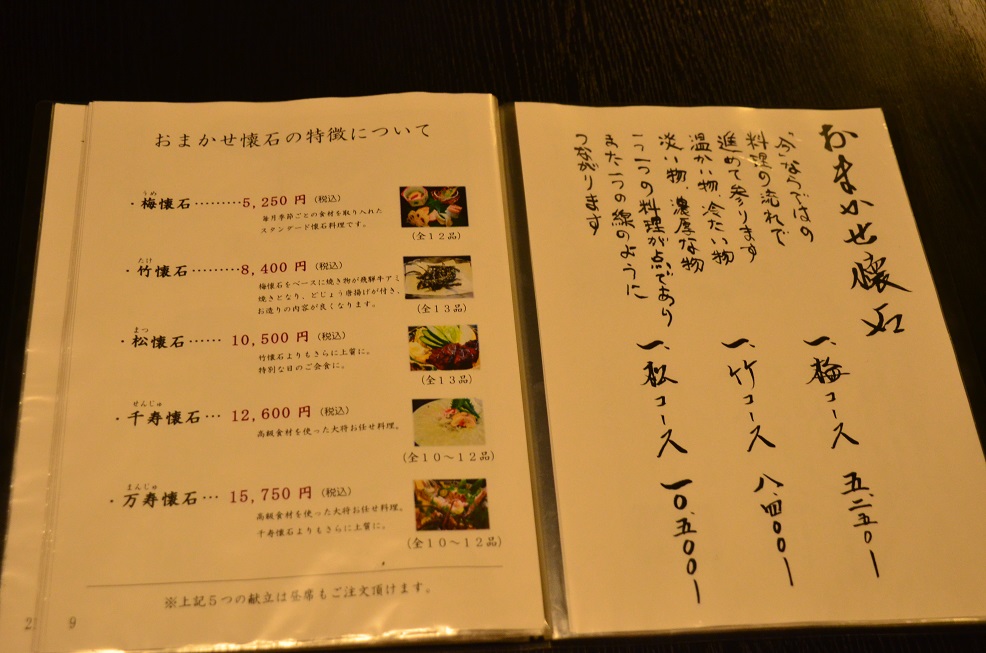 おまかせ懐石の特徴について
うめ
・梅懐石………5,250円(税込)
毎月季節ごとの食材を取り入れた
スタンダード懐石料理です。
(全12品)
たけ
・竹懐石………8,400円(税込)
梅懐石をベースに焼き物が飛騨牛アミ
焼きとなり、どじょう唐揚げが付き、
お造りの内容が良くなります。
(全13品)
まつ
・松懐石……10,500円(税込)
竹懐石よりもさらに上質に。
特別な日のご会食に。
(全13品)
せんじゅ
・千寿懐石…12,600円(税込)
高級食材を使った大将お任せ料理。
(全10〜12品)
まんじゅ
・万寿懐石…15,750円(税込)
高級食材を使った大将お任せ料理。
千寿懐石よりもさらに上質に。
(全10〜12品)
※上記5つの献立は昼席もご注文頂けます。
9
おまかせ懐石
今ならではの
料理の流れで
進めて参ります
温かい物、冷たい物
淡い物、濃厚な物
一つ一つの料理が点であり
また一つの線のように
つながります
一、梅コース 五、二五〇ー
一、竹コース 八、四〇〇ー
一、松コース 一〇、五〇〇ー